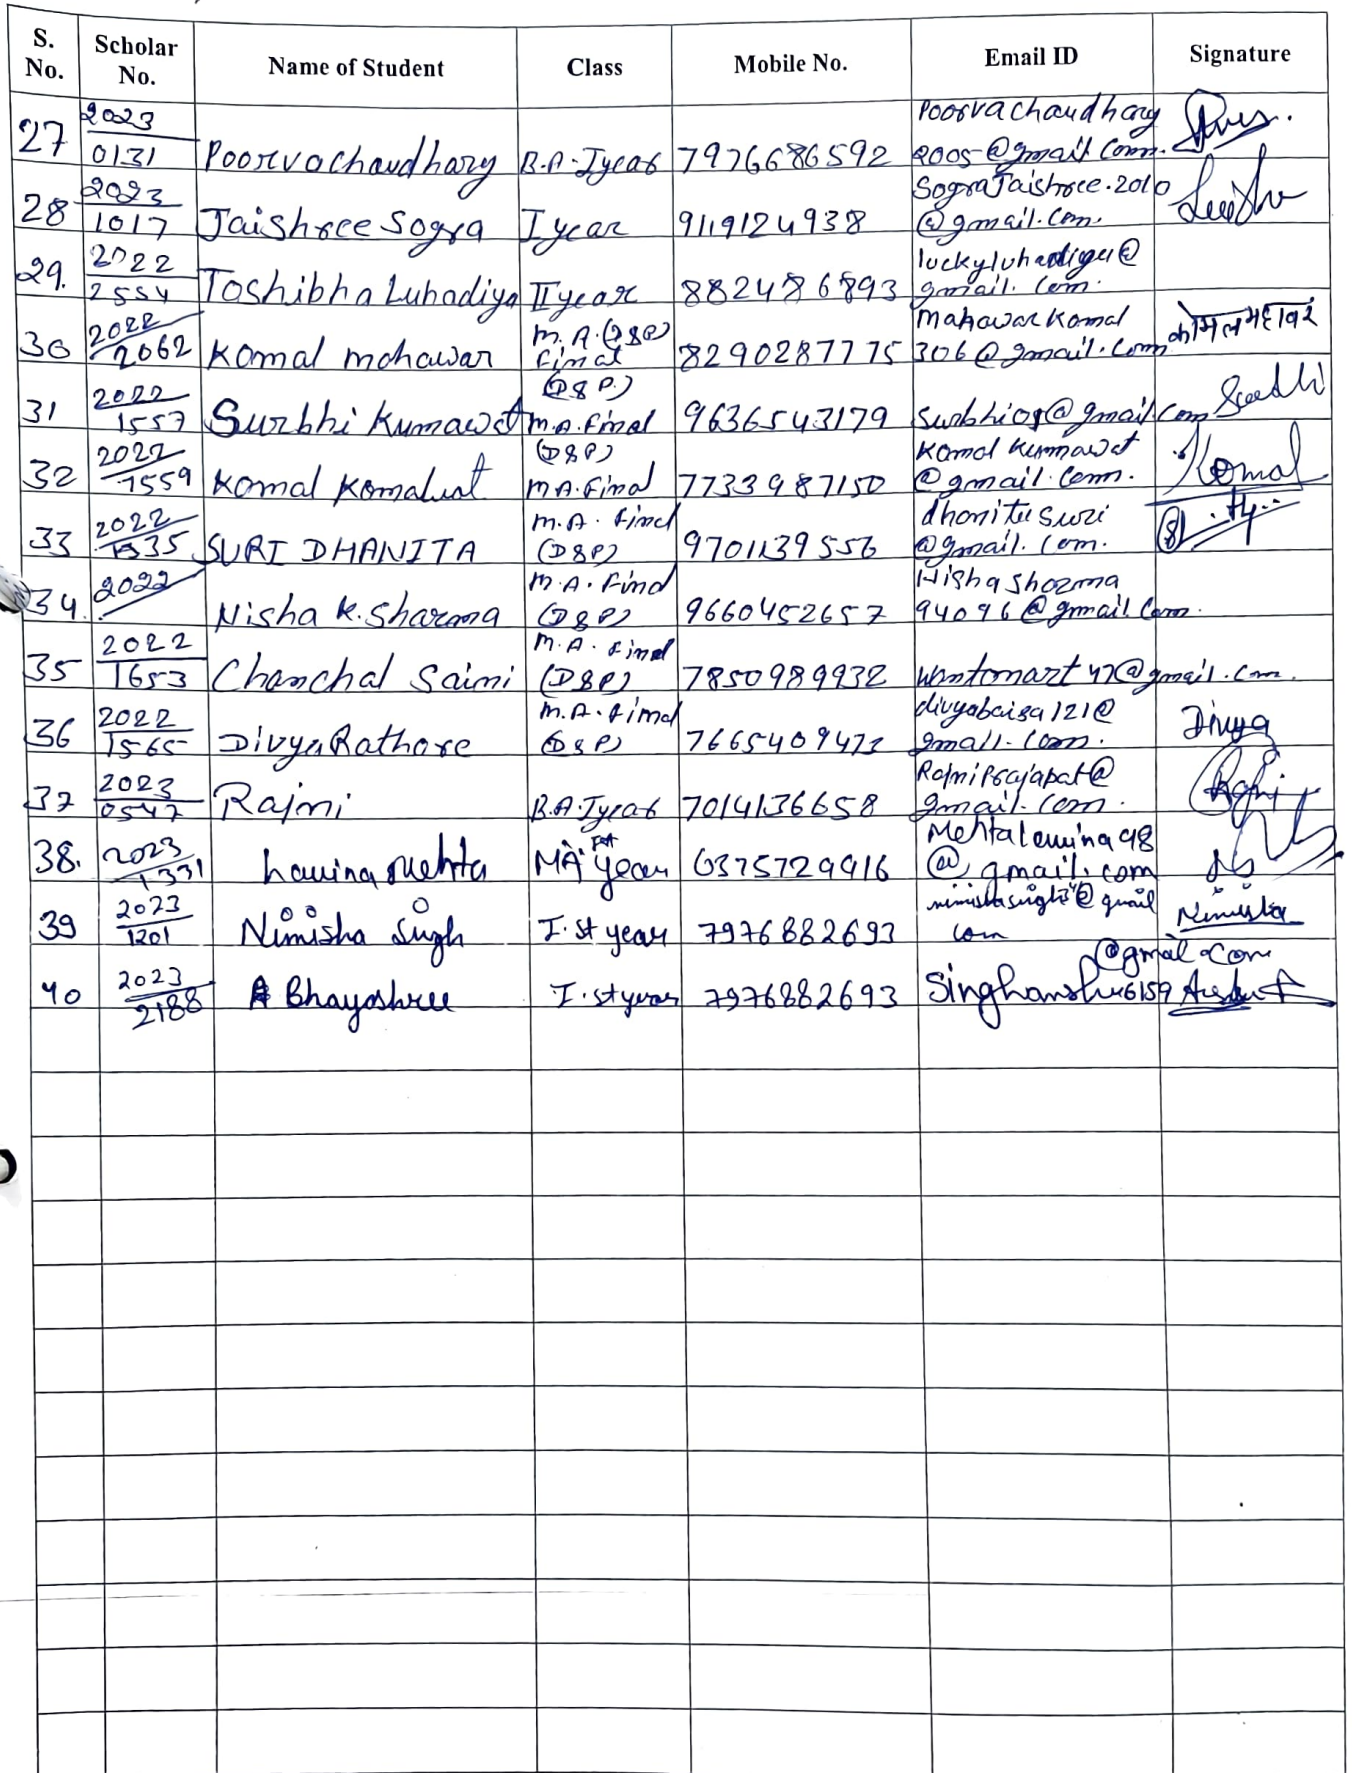 S. No. Scholar No. Name of Student Class Mobile No. Email ID Signature
27 2023/0131 Poorvachaudhary B.A. I year 7976686592 Poorvachaudhary2005@gmail.com.
28 2023/1017 Jaishree Sogra I year 9119124938 SograJaishree.2010@gmail.com.
29. 2022/2554 Toshibha Luhadiya II year 8824786893 luckyluhadiya@gmail.com.
30 2022/2062 Komal mahawar M.A.(D&P) final 8290287775 Mahawarkomal306@gmail.com कोमल महावर
31 2022/1557 Surbhi Kumawat (D&P.) M.A. final 9636543179 Surbhi09@gmail.com
32 2022/1559 Komal Komalwat (D&P) M.A. final 7733987150 Komal Kumawat@gmail.com. Komal
33 2022/1535 SURI DHANITA M.A. final (D&P) 9701139556 dhanitasuri@gmail.com.
34. 2022 Nisha K. Sharma M.A. final (D&P) 9660452657 Nisha Sharma94096@gmail.com.
35 2022/1653 Chanchal Saini M.A. final (D&P) 7850989932 Wantomart47@gmail.com.
36 2022/1565 Divya Rathore M.A. final (D&P) 7665409473 divyabaisa121@gmail.com. Divya
37 2023/0547 Rajni B.A. I year 7014136658 RajniPrajapat@gmail.com.
38. 2023/1331 Lawina Mehta MA Ist year 6375729916 Mehtalawina98@gmail.com
39 2023/1201 Nimisha Singh I.st year 7976882693 Nimisha
40 2023/2188 Bhayashree I.st year 7976882693 Singhanshu6159@gmal.com